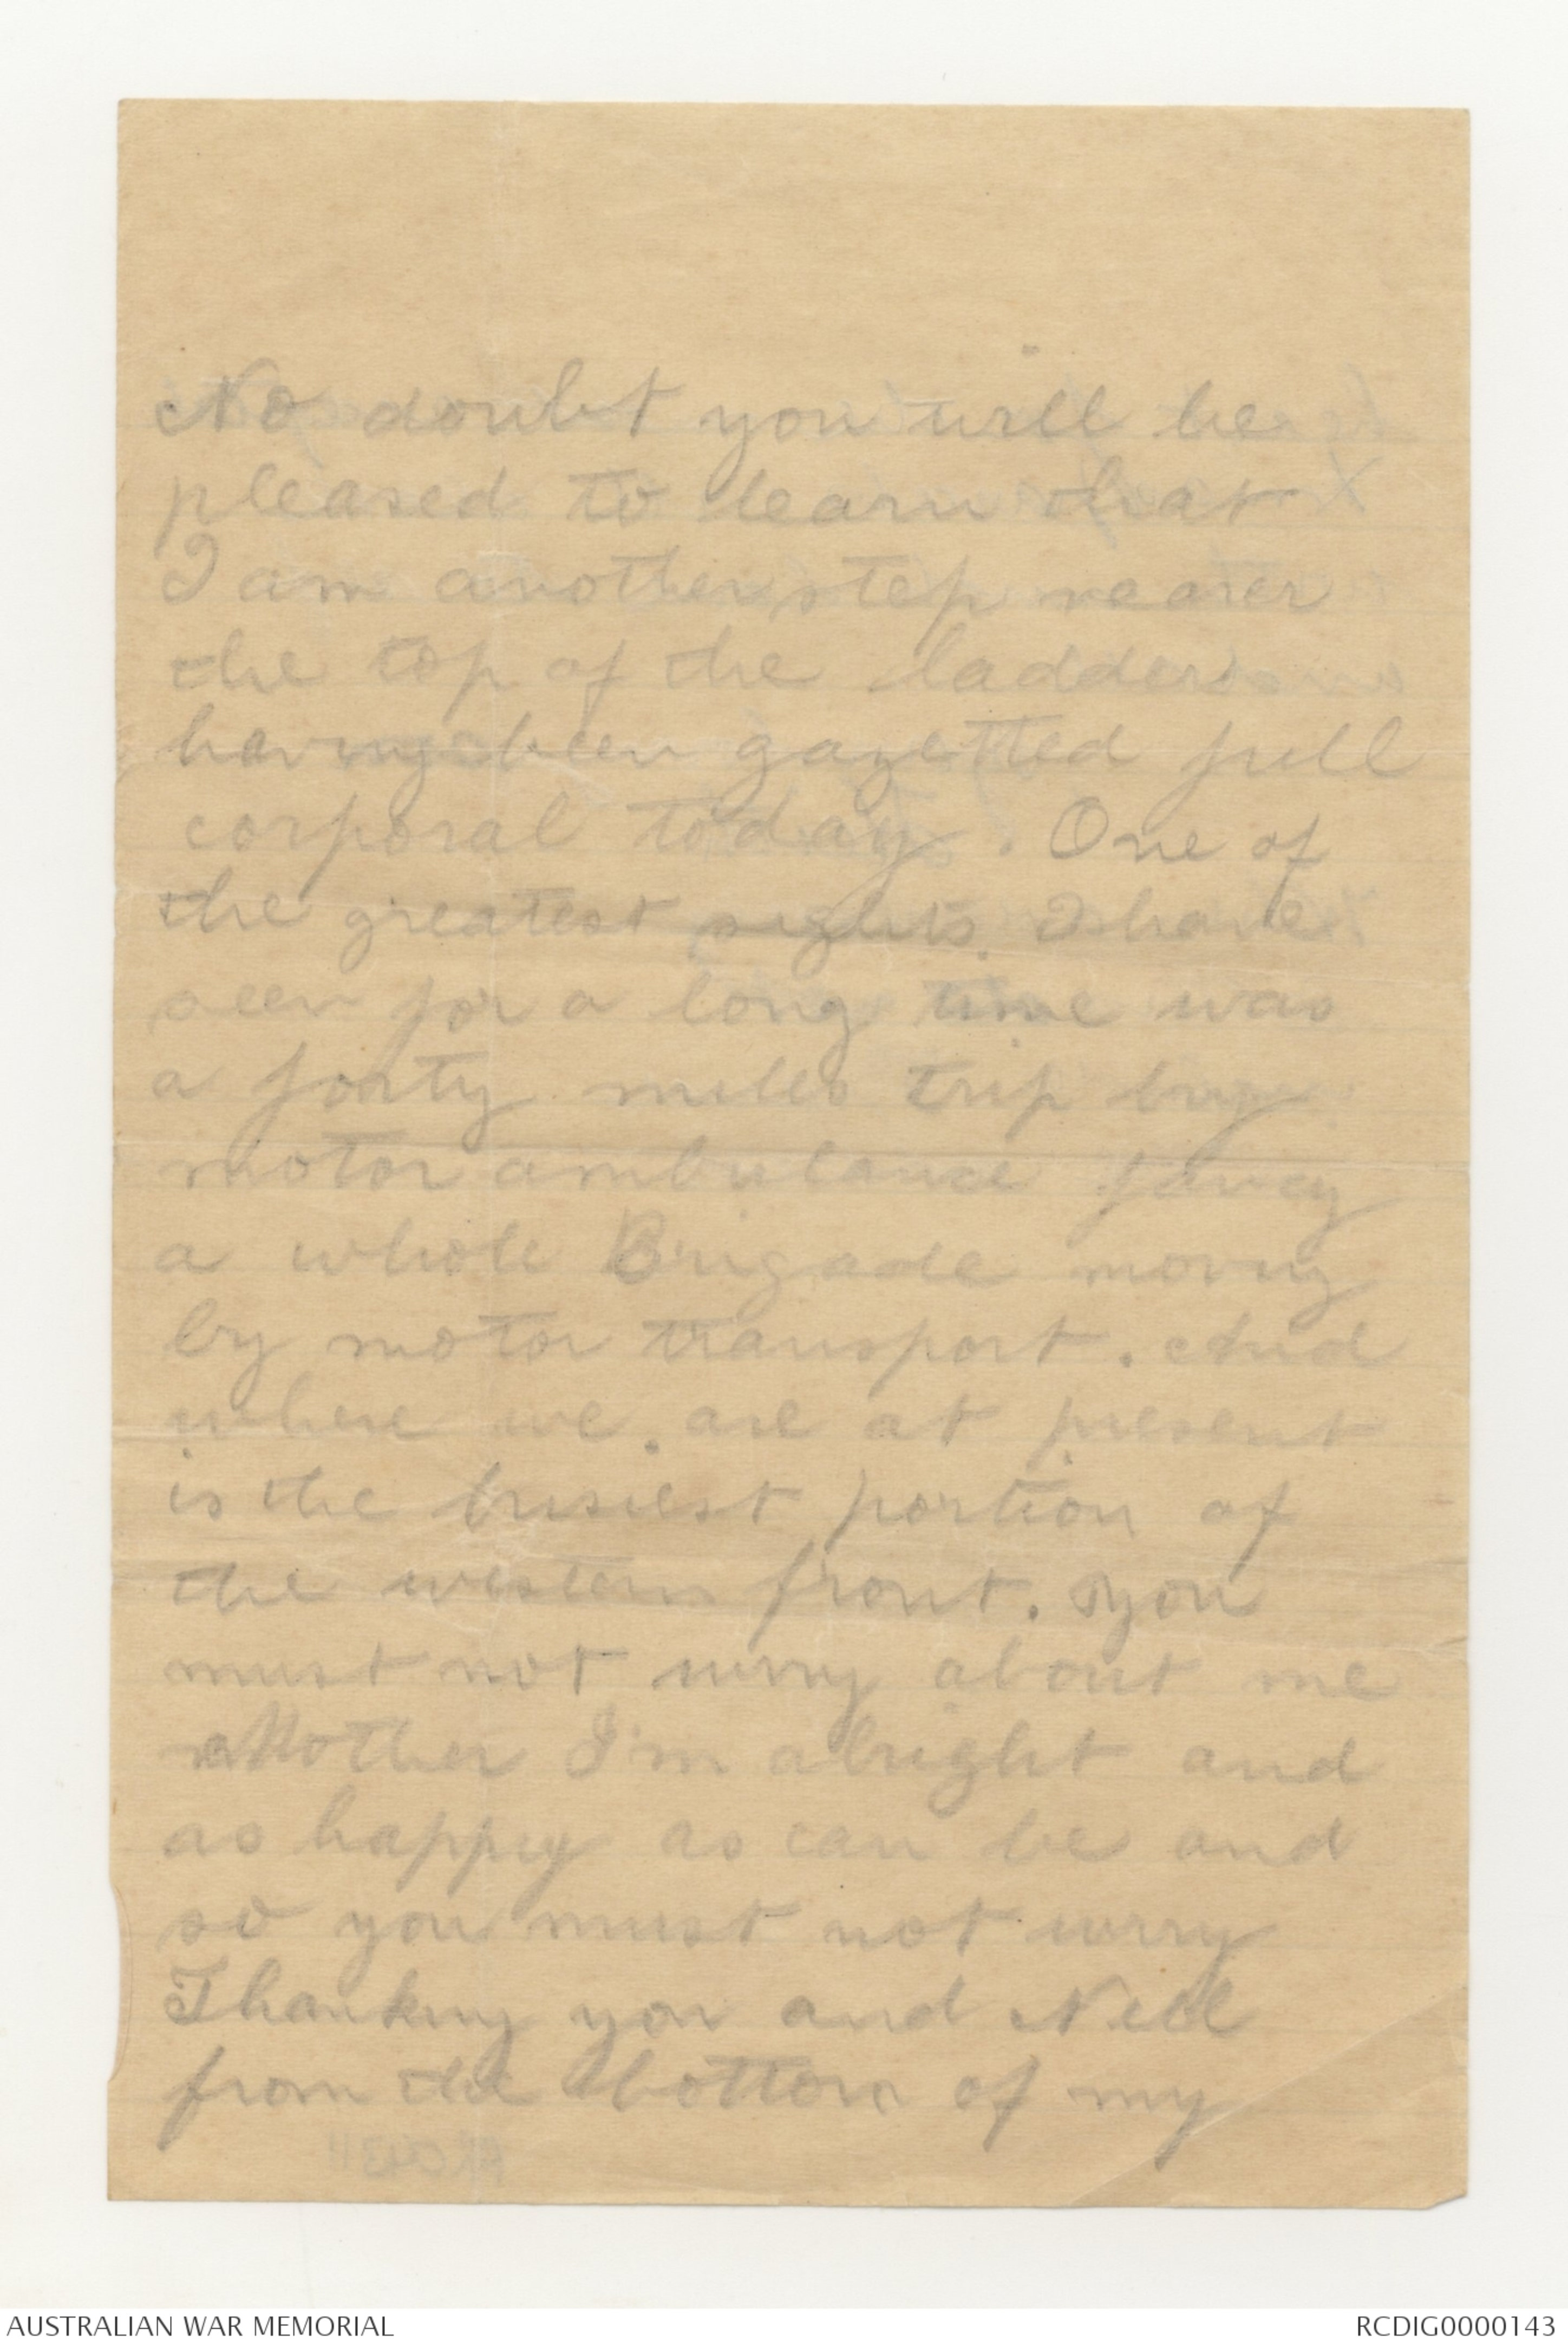 No doubt you will be
pleased to learn that
I am another step nearer
the top of the ladder
having been gazetted full
corporal today. One of
the greatest sights. I have
seen for a long time was
a forty miles trip by
motor ambulance fancy
a whole Brigade moving
by motor transport. And
where we. are at present
is the busiest portion of
the western front. you
must not worry about me
Mother I'm alright and
as happy as can be and
so you must not worry
Thanking you and Nell
from the bottom of my
AUSTRALIAN WAR MEMORIAL
RCDIG0000143